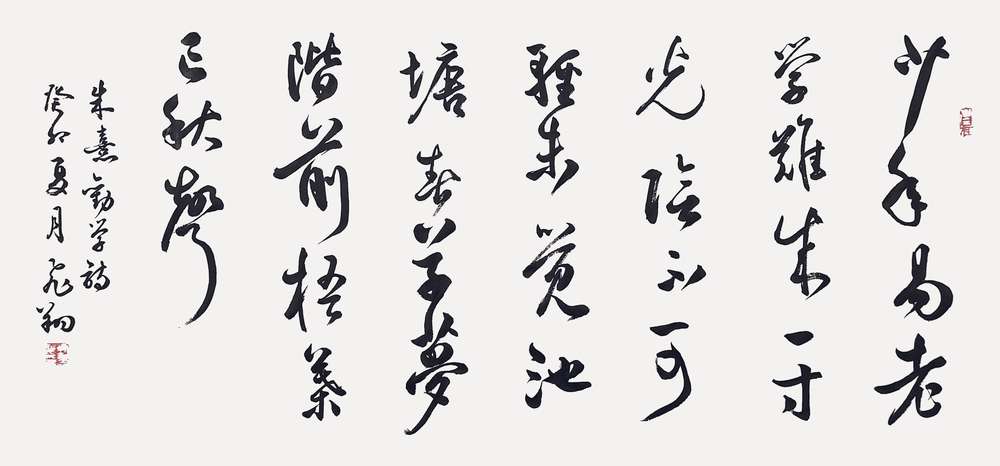 少年易老
学難成一寸
光陰不可
軽未觉池
塘春草夢
階前梧葉
已秋聲
朱熹勸学詩
癸卯夏月飛翔